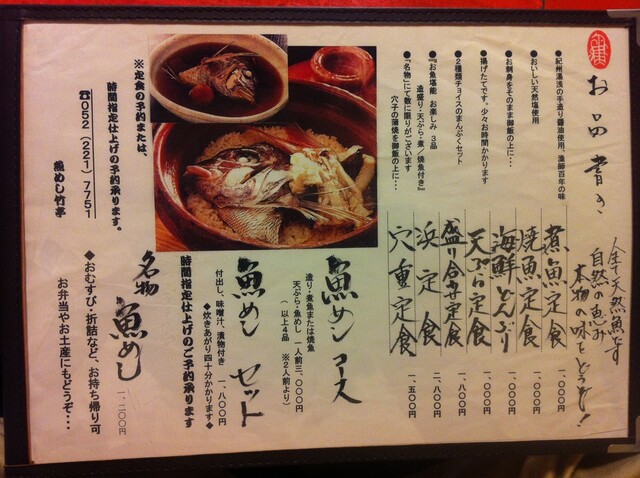 お品書き
全て天然魚です
自然の恵み
本物の味をどうぞ!
●紀州湯浅の手造り醤油使用、漁師百年の味
煮魚定食 一、〇〇〇円
●おいしい天然塩使用
焼魚定食 一、〇〇〇円
●お刺身をそのまま御飯の上に・・・
海鮮どんぶり 一、〇〇〇円
●揚げたてです。少々お時間かかります
天ぷら定食 一、〇〇〇円
●2種類チョイスのまんぷくセット
盛り合わせ定食 一、八〇〇円
●『お魚堪能 お楽しみ 3品
造盛り・天ぷら・煮/焼魚付き』
浜定食 二、八〇〇円
●『名物』にて数に限りがございます
穴子の蒲焼を御飯の上に・・・
穴重定食 一、五〇〇円
魚めし コース
造り・煮魚または焼魚
天ぷら・魚めし 一人前三、〇〇〇円
(以上4品 ※2人前より)
魚めし セット
付出し、味噌汁、漬物付き 一、八〇〇円
◆炊きあがり四十分かかります◆
時間指定仕上げのご予約承ります
名物 魚めし 一、二〇〇円
◆おむすび・折詰など、お持ち帰り可
お弁当やお土産にもどうぞ・・・
※定食の予約または、
時間指定仕上げの予約承ります。
☎052(221)7751
魚めし竹亭